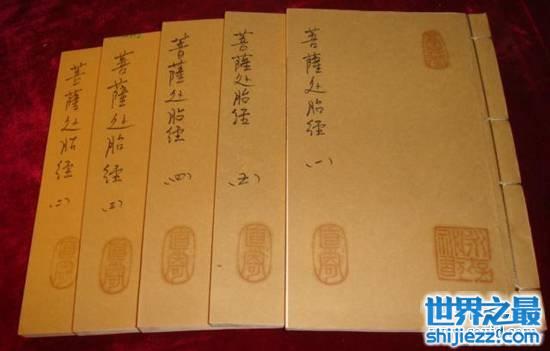 菩薩处胎經 (一)
菩薩处胎經 (五)
菩薩处胎經 (四)
菩薩处胎經 (三)
菩薩处胎經 (二)
世界之最
shijiezz.com